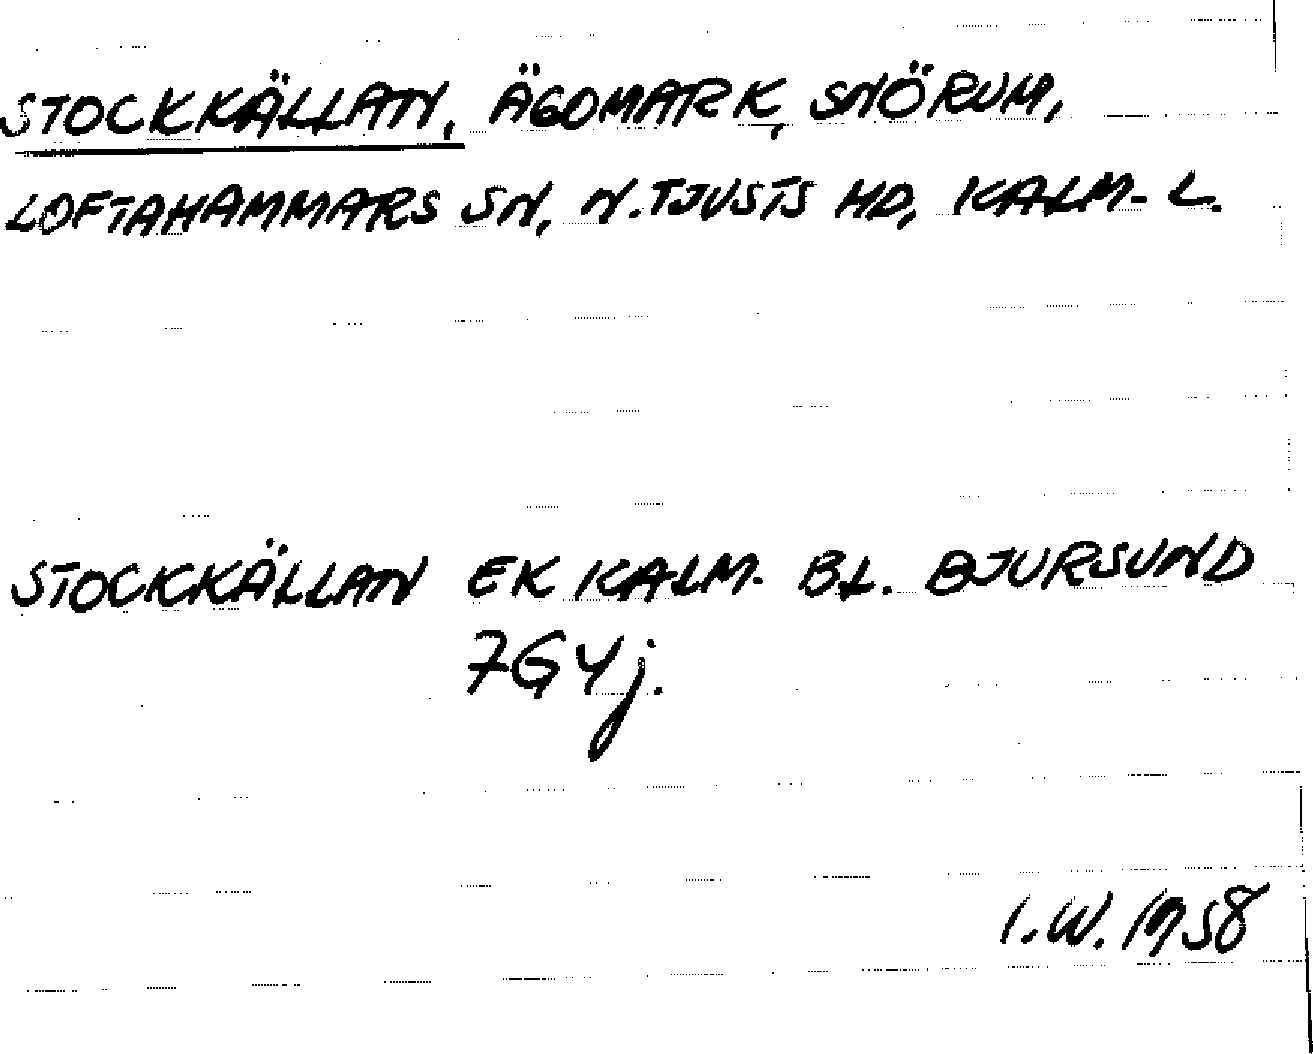 STOCKKÄLLAN, ÄGOMARK, SNÖRUM,
LOFTAHAMMARS SN, N. TJUSTS HD, KALM. L.
STOCKKÄLLAN EK KALM. BL. BJURSUND
7G4j.
I.W. 1958